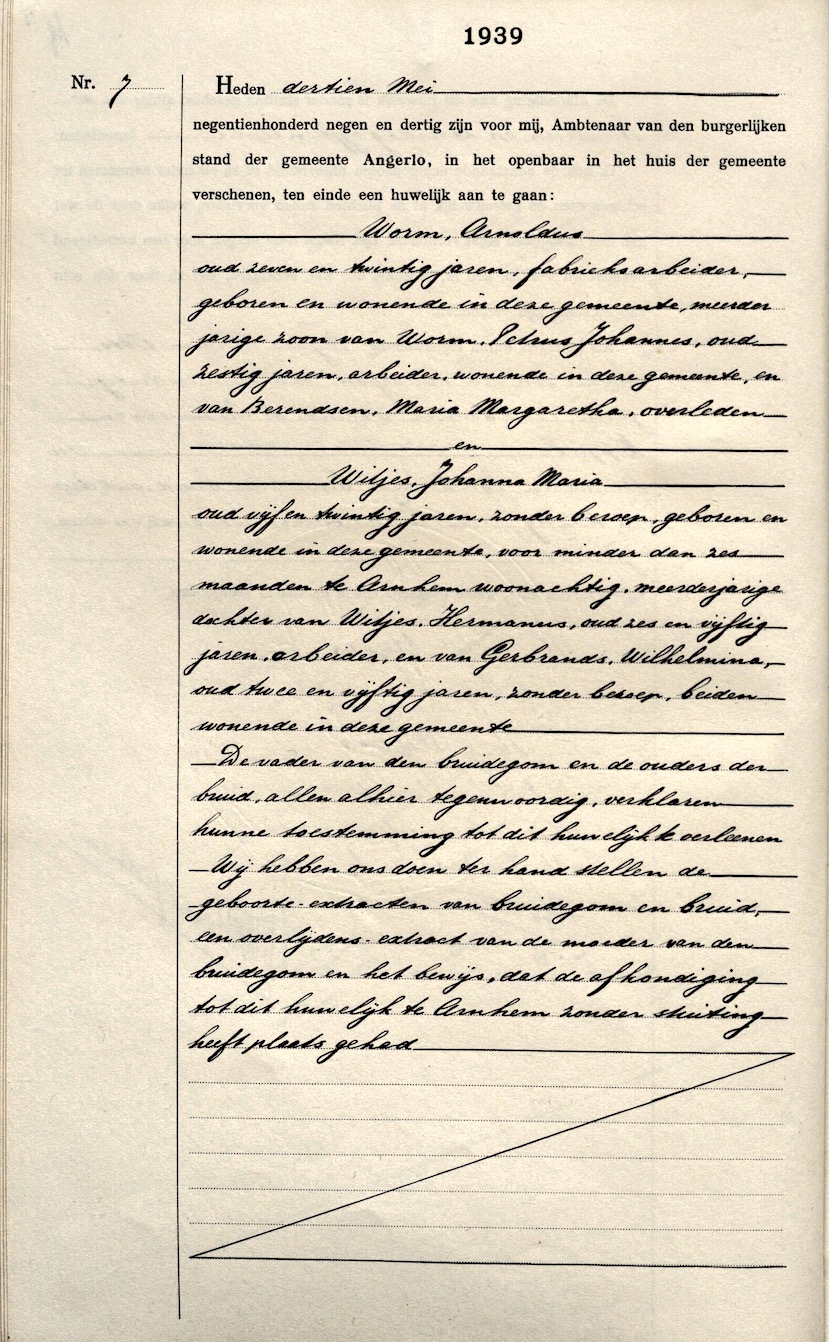 1939
Nr. 7
Heden dertien Mei
negentienhonderd negen en dertig zijn voor mij, Ambtenaar van den burgerlijken
stand der gemeente Angerlo, in het openbaar in het huis der gemeente
verschenen, ten einde een huwelijk aan te gaan:
Worm, Arnoldus
oud zeven en twintig jaren, fabrieksarbeider,
geboren en wonende in deze gemeente, meerder
jarige zoon van Worm, Petrus Johannes, oud
zestig jaren, arbeider, wonende in deze gemeente, en
van Berendsen, Maria Margaretha, overleden
en
Witjes, Johanna Maria
oud vijf en twintig jaren, zonder beroep, geboren en
wonende in deze gemeente, voor minder dan zes
maanden te Arnhem woonachtig, meerderjarige
dochter van Witjes, Hermanus, oud zes en vijftig
jaren, arbeider, en van Gerbrands, Wilhelmina,
oud twee en vijftig jaren, zonder beroep, beiden
wonende in deze gemeente
De vader van den bruidegom en de ouders der
bruid, allen alhier tegenwoordig, verklaren
hunne toestemming tot dit huwelijk te verleenen
Wij hebben ons doen ter hand stellen de
geboorte-extracten van bruidegom en bruid,
een overlijdens-extract van de moeder van den
bruidegom en het bewijs, dat de afkondiging
tot dit huwelijk te Arnhem zonder stuiting
heeft plaats gehad